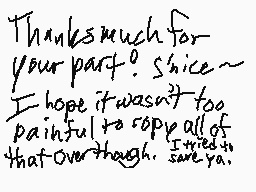 Thanks much for
your part! S'nice ~
I hope it wasn't too
painful to copy all of
that over though. I tried to
save ya.